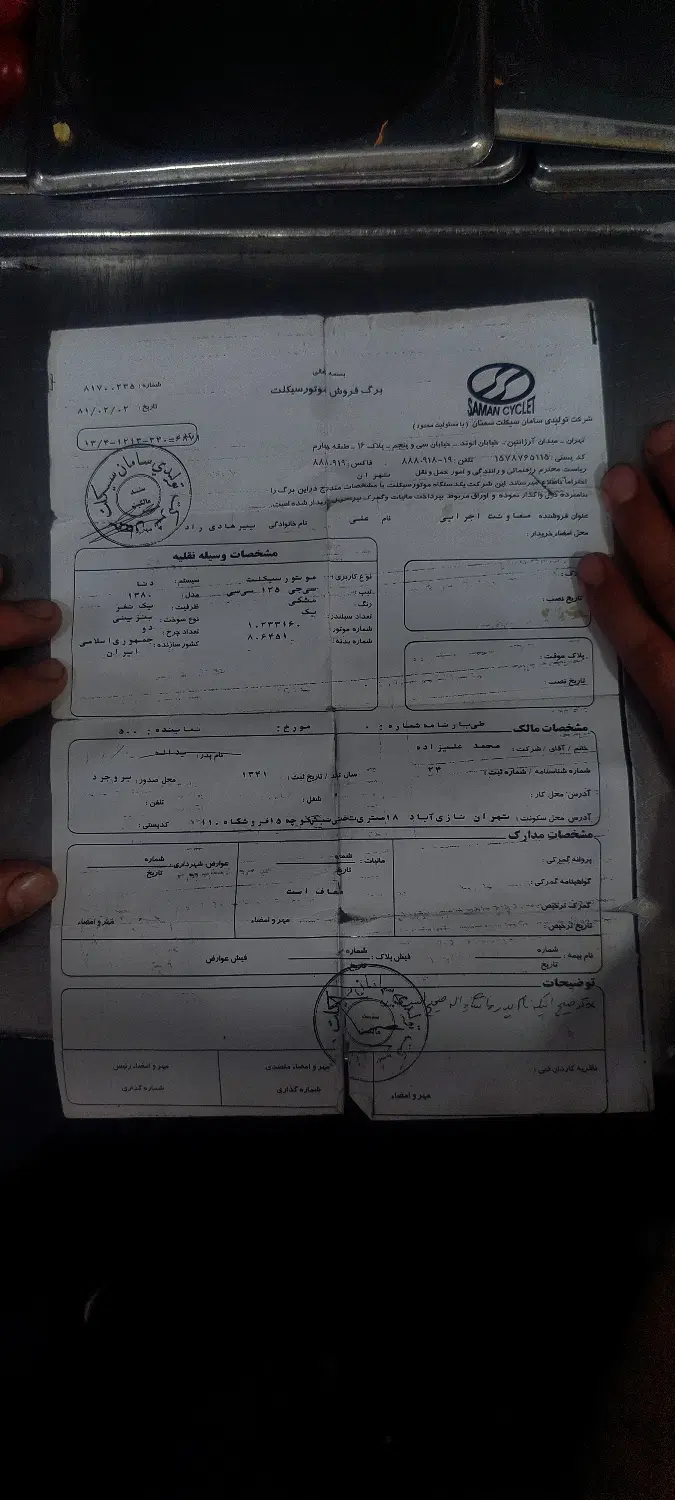 بسمه تعالی
برگ فروش موتورسیکلت
شماره: ۸۱۷۰۰۲۳۵
تاریخ: ۸۱/۰۲/۰۲
SAMAN CYCLET
شرکت تولیدی سامان سیکلت سمنان (با مسئولیت محدود)
تهران - میدان آرژانتین - خیابان الوند - خیابان سی و پنجم - پلاک ۱۶ - طبقه چهارم
کد پستی: ۱۵۷۸۷۶۵۱۱۵ تلفن: ۱۹-۸۸۸۰۹۱۸ فاکس: ۸۸۸۰۹۱۹
ریاست محترم راهنمائی و رانندگی و امور حمل و نقل تهران
احتراماً باطلاع میرساند این شرکت یکدستگاه موتورسیکلت با مشخصات مندرج در این برگ را
نامبرده ذیل واگذار نموده و اوراق مربوط بپرداخت مالیات وگمرک خریدار شده است.
عنوان فروشنده معاونت اجرایی نام علی نام خانوادگی میرهادی راد
محل امضاء خریدار:
تولیدی سامان سیکلت
سند
مالکیت
مشخصات وسیله نقلیه
نوع کاربری: موتورسیکلت سیستم: دنا
تیپ: سی‌جی ۱۲۵ سی‌سی مدل: ۱۳۸۰
رنگ: مشکی ظرفیت: یک نفر
تعداد سیلندر: یک نوع سوخت: بنزینی
شماره موتور: ۱۰۳۳۳۱۶۰ تعداد چرخ: دو
شماره بدنه: ۸۰۶۴۵۱ کشور سازنده: جمهوری اسلامی
ایران
پلاک:
تاریخ نصب:
پلاک موقت:
تاریخ نصب:
مشخصات مالک طی بارنامه شماره: ۰ مورخ: نماینده: ۵۰۰
خانم / آقای / شرکت: محمد علیزاده نام پدر: یداله
شماره شناسنامه / شماره ثبت: ۲۴ سال تولد / تاریخ ثبت: ۱۳۴۱ محل صدور: بروجرد
آدرس محل کار: شغل: تلفن:
آدرس محل سکونت: تهران نازی آباد ۱۸متری کوچه ۱۵ فروشگاه کدپستی:
مشخصات مدارک
پروانه گمرکی:
گواهینامه گمرکی:
گمرک ترخیص:
تاریخ ترخیص:
مالیات: شماره
تاریخ
معاف است
مهر و امضاء
عوارض شهرداری: شماره
تاریخ
مهر و امضاء
نام بیمه: شماره
تاریخ
فیش پلاک: شماره
تاریخ
فیش عوارض
توضیحات
نام پدر
نظریه کاردان فنی:
مهر و امضاء
مهر و امضاء متصدی
شماره گذاری
مهر و امضاء رئیس
شماره گذاری